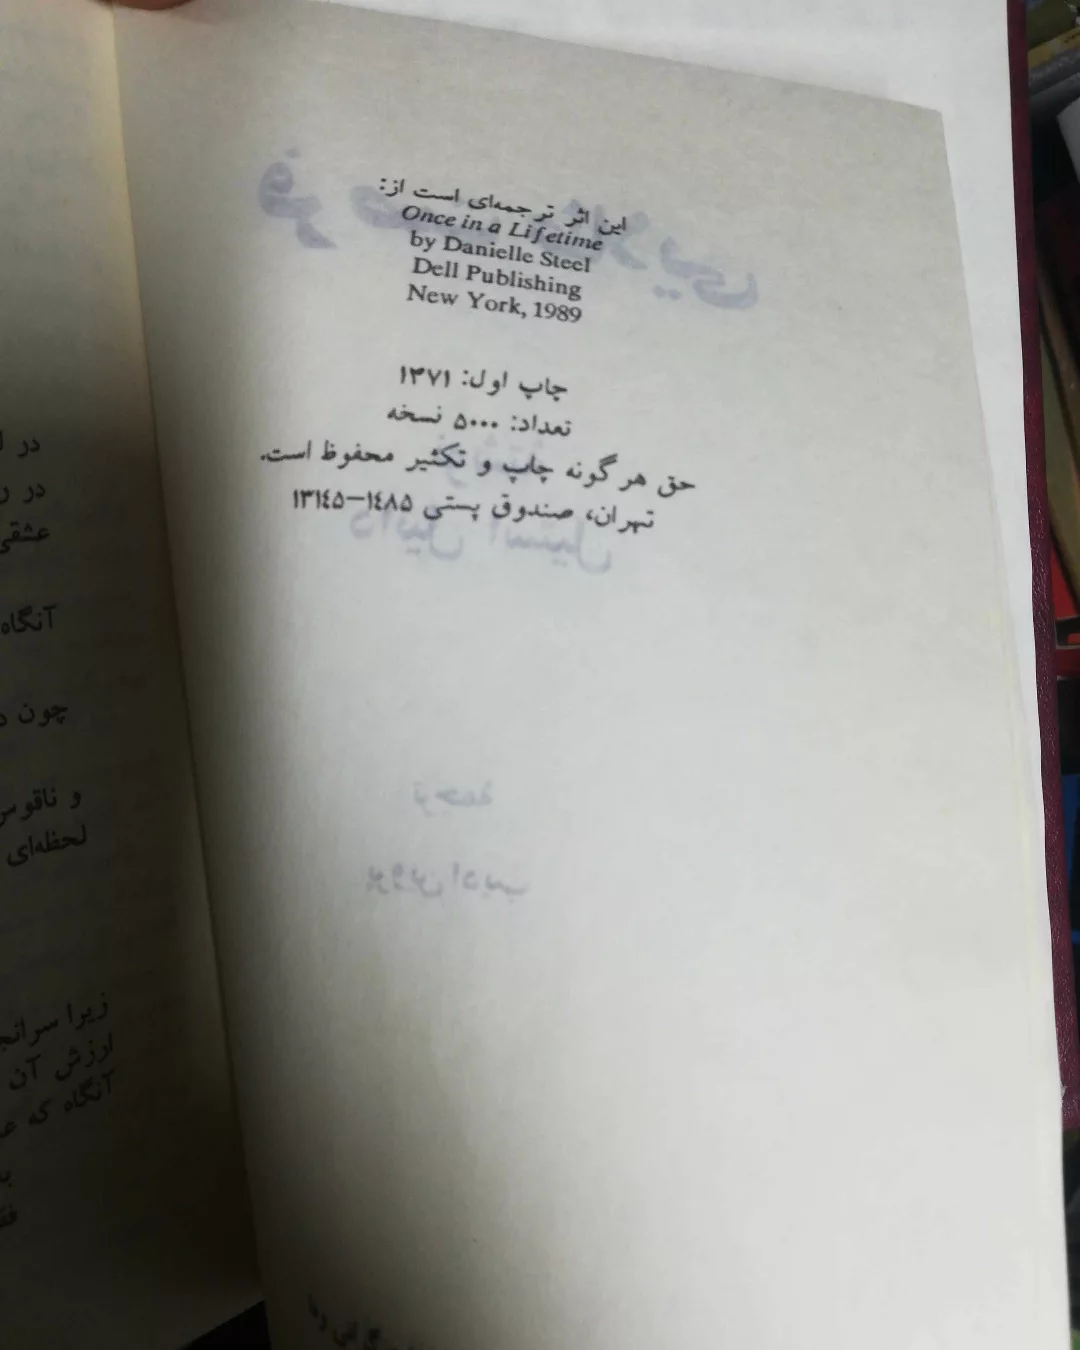 این اثر ترجمه‌ای است از:
Once in a Lifetime
by Danielle Steel
Dell Publishing
New York, 1989
چاپ اول: ۱۳۷۱
تعداد: ۵۰۰۰ نسخه
حق هر گونه چاپ و تکثیر محفوظ است.
تهران، صندوق پستی ۱۴۸۵–۱۳۱۴۵
ترجمهٔ
پروین ادیب
دانیل استیل
در
در
عشقی
آنگاه
چون
و ناقوس
لحظه‌ای
زیرا
ارزش آن
آنگاه که